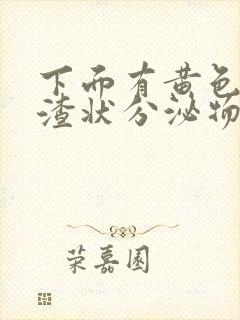 下而有黄色
渣状分泌物
荣嘉园